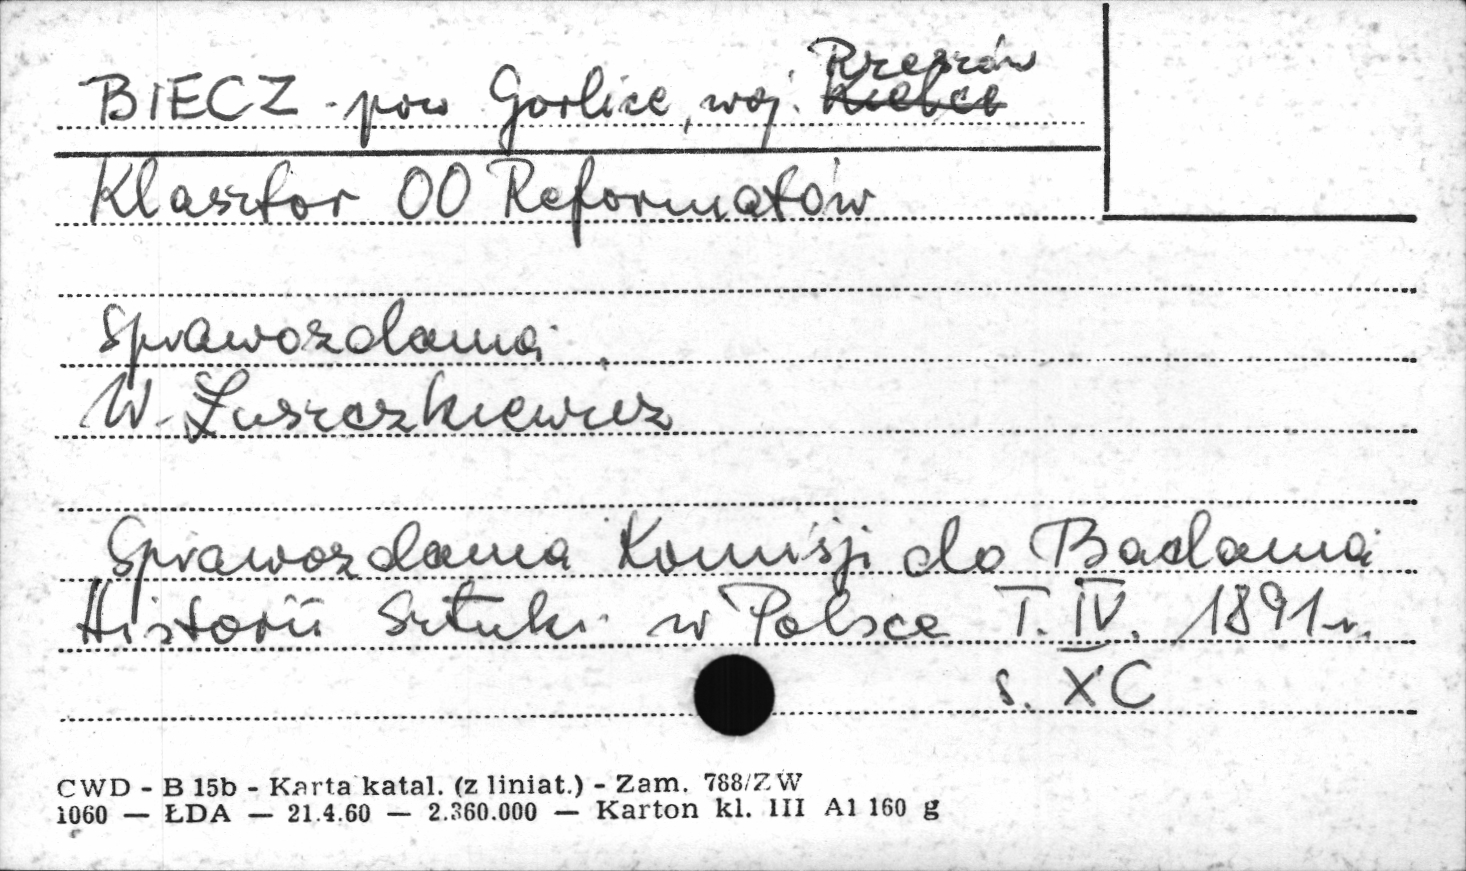 BIECZ - pow Gorlice, woj. Rzeszów
Kielce
Klasztor OO Reformatów
Sprawozdania
W. Łuszczkiewicz
Sprawozdania Komisji do Badania
Historii Sztuki w Polsce T. IV. 1891 r.
s. XC
CWD - B 15b - Karta katal. (z liniat.) - Zam. 788/ZW
1060 — ŁDA — 21.4.60 — 2.360.000 — Karton kl. III A1 160 g